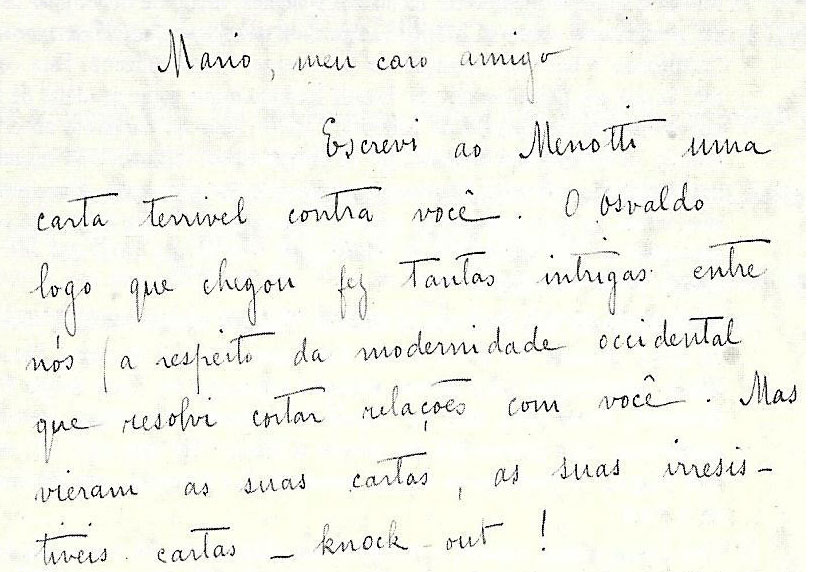 Mario, meu caro amigo
Escrevi ao Menotti uma
carta terrivel contra você. O Osvaldo
logo que chegou fez tantas intrigas entre
nós (a respeito da modernidade occidental
que resolvi cortar relações com você. Mas
vieram as suas cartas, as suas irresis-
tiveis cartas - knock-out!